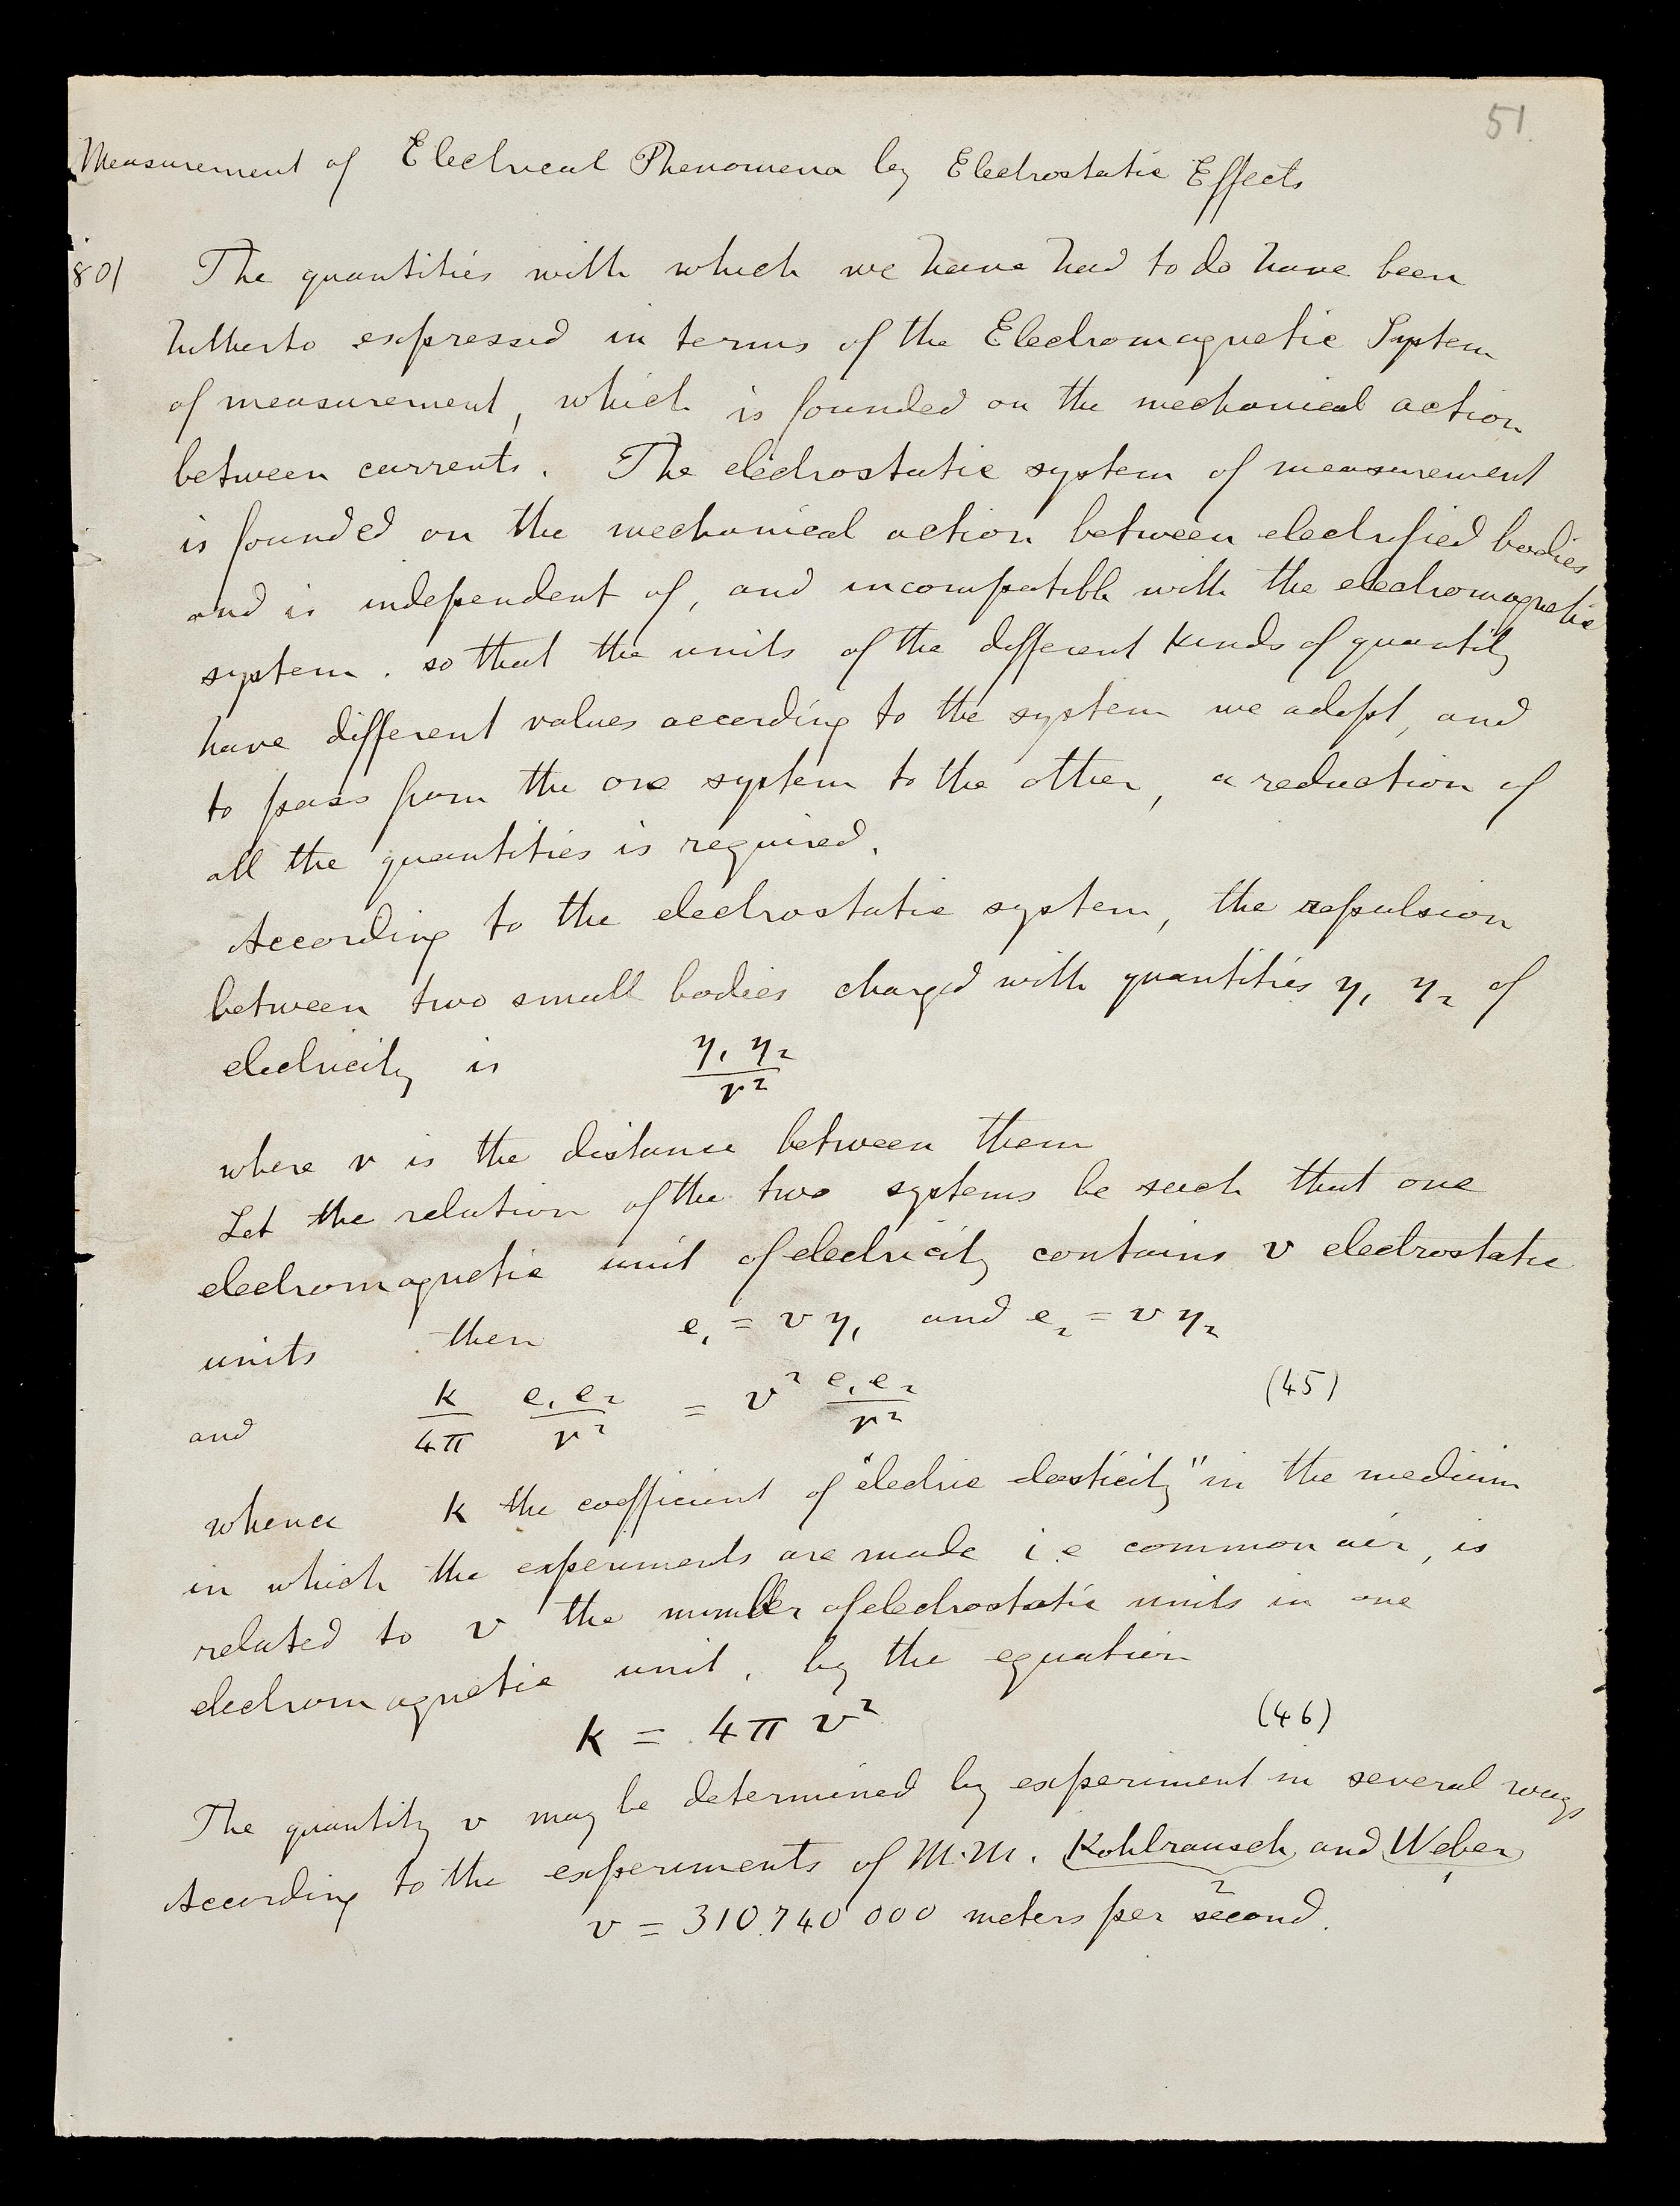 51.
Measurement of Electrical Phenomena by Electrostatic Effects
80) The quantities with which we have had to do have been
hitherto expressed in terms of the Electromagnetic System
of measurement, which is founded on the mechanical action
between currents. The electrostatic system of measurement
is founded on the mechanical action between electrified bodies,
and is independent of, and incompatible with the electromagnetic
system. so that the units of the different kinds of quantity
have different values according to the system we adopt, and
to pass from the one system to the other, a reduction of
all the quantities is required.
According to the electrostatic system, the repulsion
between two small bodies charged with quantities η₁ η₂ of
electricity is η₁ η₂ / r²
where r is the distance between them
Let the relation of the two systems be such that one
electromagnetic unit of electricity contains v electrostatic
units then e₁ = v η₁ and e₂ = v η₂
and k/4π e₁ e₂/r² = v² e₁ e₂/r² (45)
whence k the coefficient of "electric elasticity" in the medium
in which the experiments are made i.e common air, is
related to v the number of electrostatic units in one
electromagnetic unit, by the equation
k = 4π v² (46)
The quantity v may be determined by experiment in several ways
According to the experiments of M.M. Kohlrausch and Weber
2 1
v = 310.740 000 meters per second.